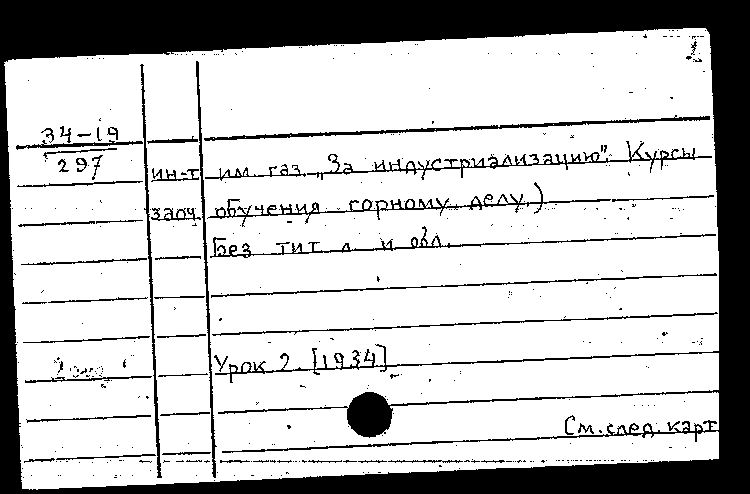 2
34-19
297
ин-т им. газ. „За индустриализацию". Курсы
заоч. обучения горному делу.)
Без тит. л. и обл.
2 экз.
Урок 2. [1934]
См. след. карт